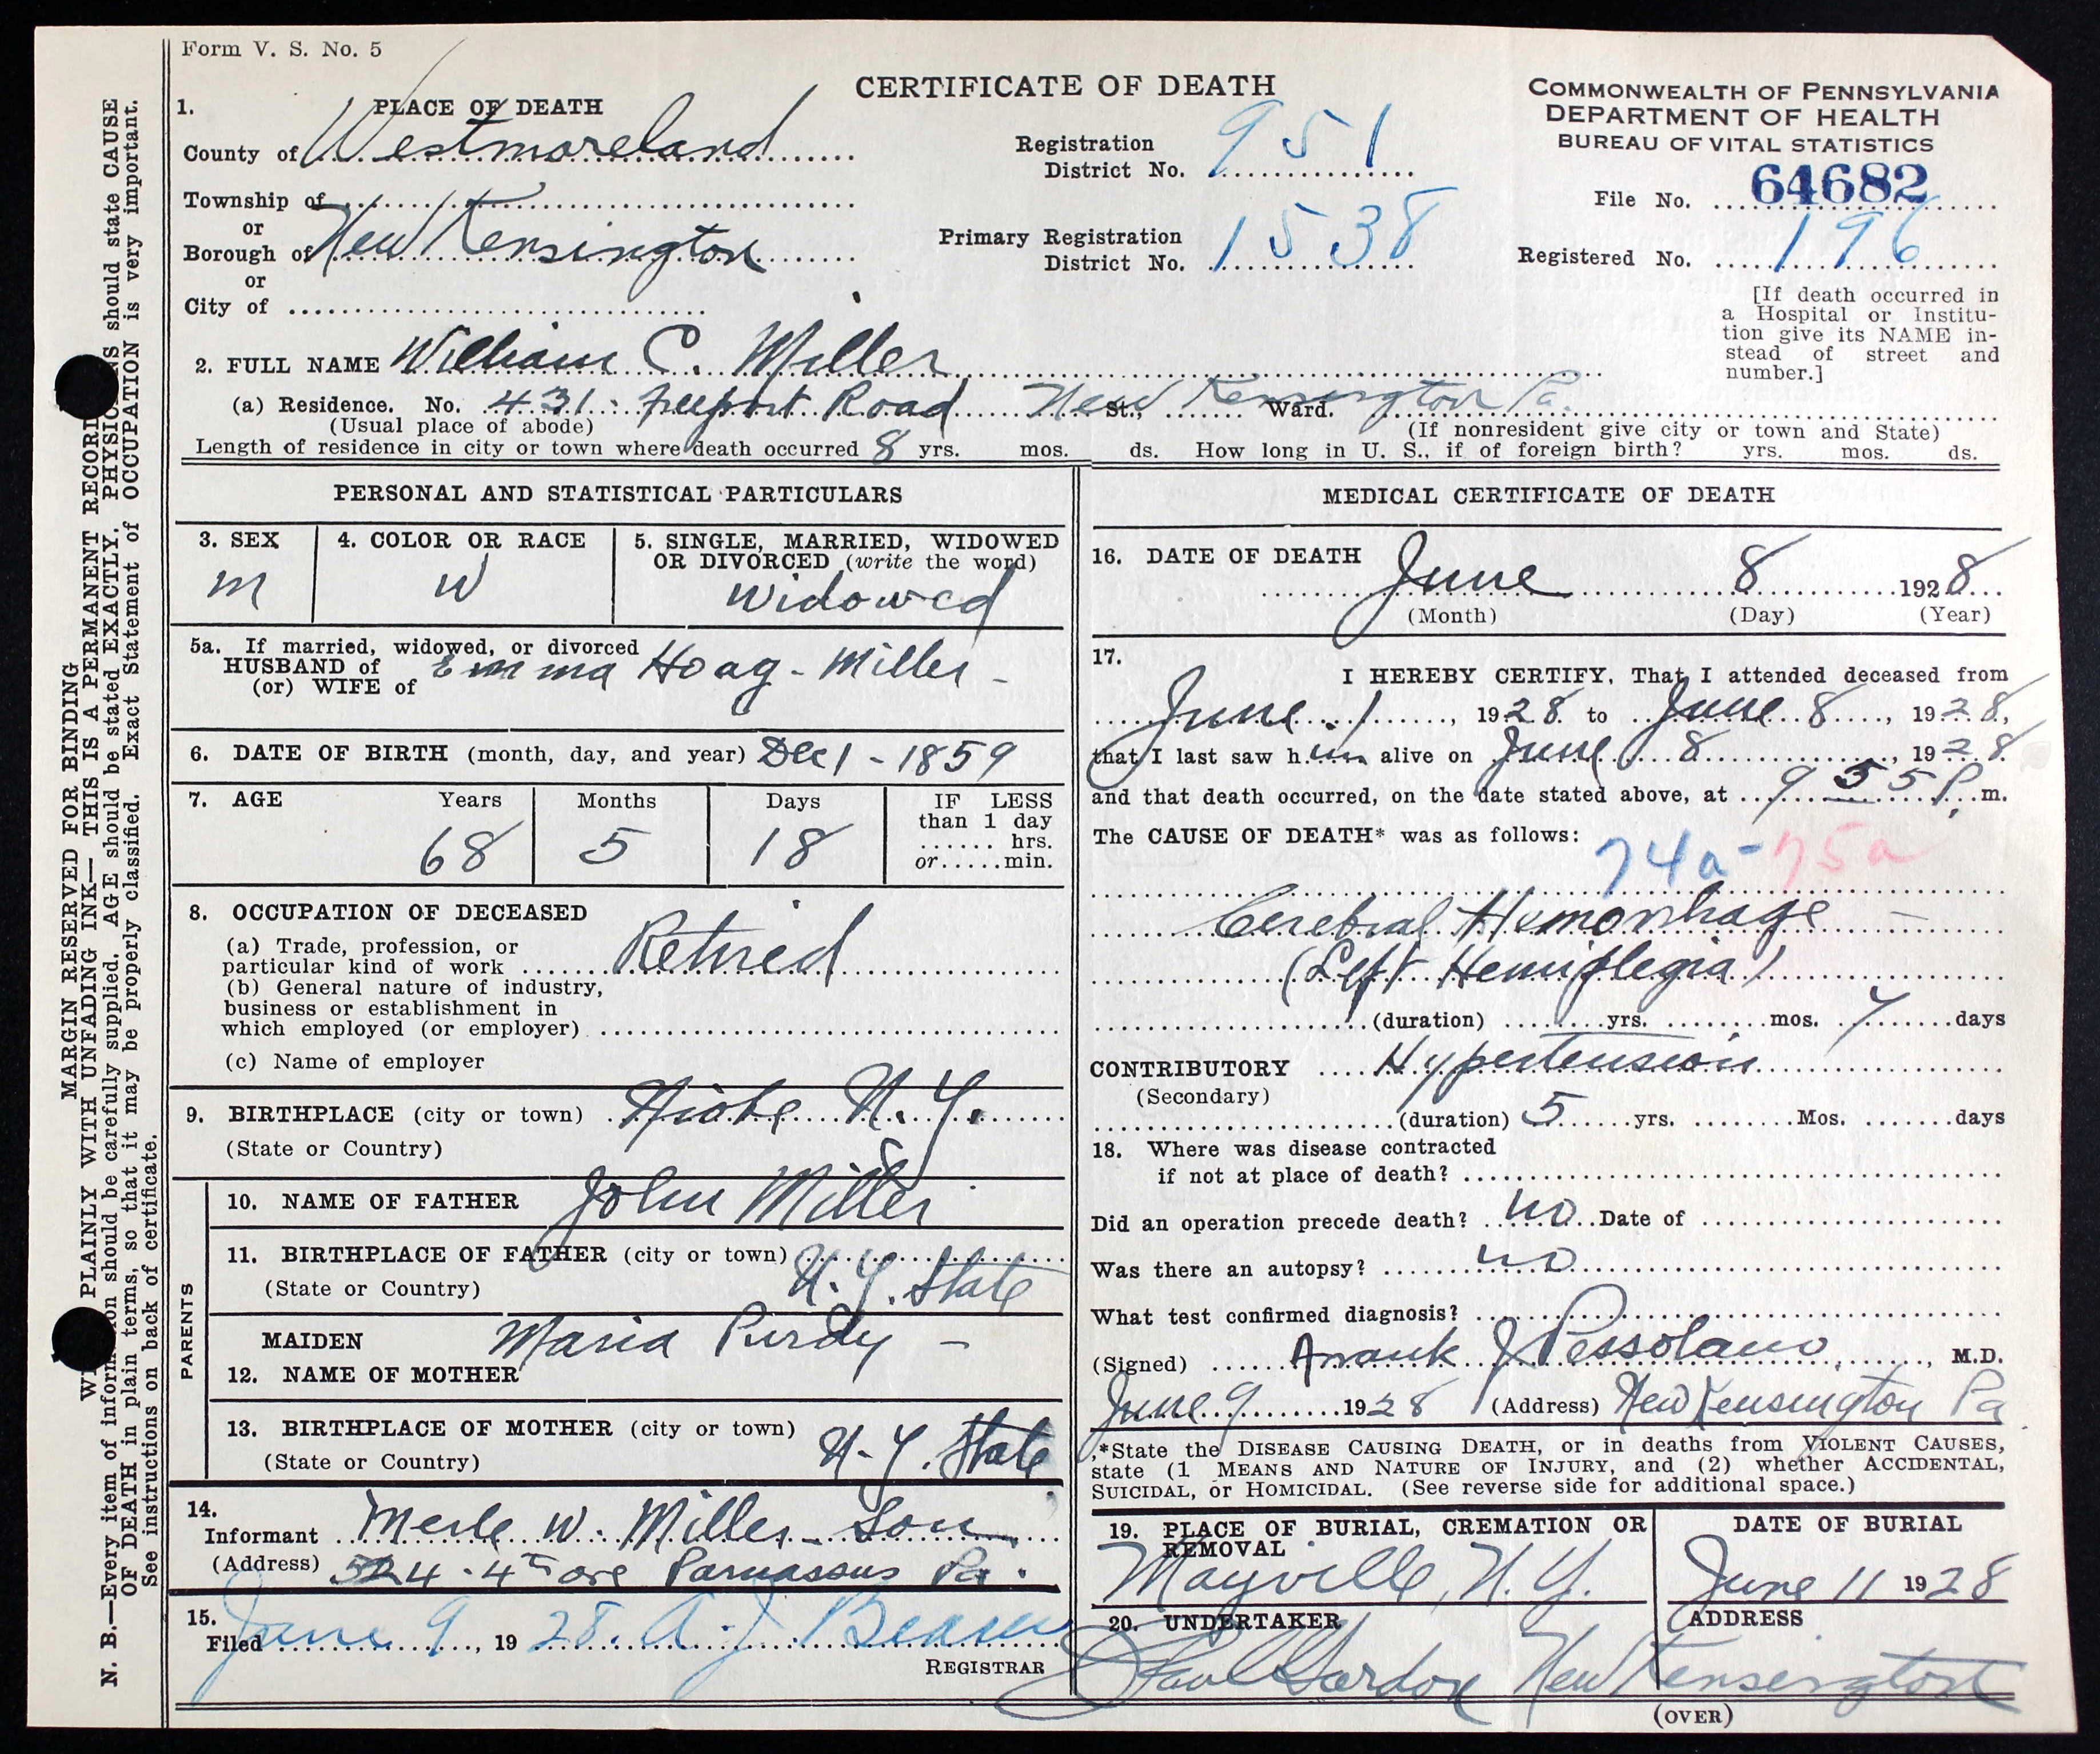 Form V. S. No. 5
CERTIFICATE OF DEATH
COMMONWEALTH OF PENNSYLVANIA
DEPARTMENT OF HEALTH
BUREAU OF VITAL STATISTICS
1. PLACE OF DEATH
County of Westmoreland
Township of
or
Borough of New Kensington
or
City of
Registration District No. 951
Primary Registration District No. 1538
File No. 64682
Registered No. 196
[If death occurred in
a Hospital or Institu-
tion give its NAME in-
stead of street and
number.]
2. FULL NAME William C. Miller
(a) Residence. No. 431 Freeport Road St., New Kensington Pa. Ward.
(Usual place of abode)
(If nonresident give city or town and State)
Length of residence in city or town where death occurred 8 yrs. mos. ds. How long in U. S., if of foreign birth? yrs. mos. ds.
PERSONAL AND STATISTICAL PARTICULARS
3. SEX
m
4. COLOR OR RACE
W
5. SINGLE, MARRIED, WIDOWED
OR DIVORCED (write the word)
Widowed
5a. If married, widowed, or divorced
HUSBAND of
(or) WIFE of
Emma Hoag - Miller -
6. DATE OF BIRTH (month, day, and year) Dec 1 - 1859
7. AGE
Years
68
Months
5
Days
18
IF LESS
than 1 day
...... hrs.
or.....min.
8. OCCUPATION OF DECEASED
(a) Trade, profession, or
particular kind of work Retired
(b) General nature of industry,
business or establishment in
which employed (or employer)
(c) Name of employer
9. BIRTHPLACE (city or town) Niobe N. Y.
(State or Country)
PARENTS
10. NAME OF FATHER John Miller
11. BIRTHPLACE OF FATHER (city or town)
(State or Country) N. Y. State
MAIDEN
12. NAME OF MOTHER
Maria Purdy -
13. BIRTHPLACE OF MOTHER (city or town)
(State or Country)
N. Y. State
14.
Informant Merle W. Miller - Son
(Address) 524 - 4th ave Parnassus Pa.
15.
Filed June 9, 1928. A. J.
REGISTRAR
MEDICAL CERTIFICATE OF DEATH
16. DATE OF DEATH
June 8 1928
(Month) (Day) (Year)
17.
I HEREBY CERTIFY, That I attended deceased from
June 1, 1928 to June 8, 1928,
that I last saw him alive on June 8, 1928
and that death occurred, on the date stated above, at 9 55 P. m.
The CAUSE OF DEATH* was as follows:
74a - 75a
Cerebral Hemorrhage -
(Left Hemiplegia)
(duration) yrs. mos. 7 days
CONTRIBUTORY Hypertension
(Secondary)
(duration) 5 yrs. Mos. days
18. Where was disease contracted
if not at place of death?
Did an operation precede death? no Date of
Was there an autopsy? no
What test confirmed diagnosis?
(Signed) J Pessolano, M.D.
June 9 1928 (Address) New Kensington Pa
*State the DISEASE CAUSING DEATH, or in deaths from VIOLENT CAUSES,
state (1 MEANS AND NATURE OF INJURY, and (2) whether ACCIDENTAL,
SUICIDAL, or HOMICIDAL. (See reverse side for additional space.)
19. PLACE OF BURIAL, CREMATION OR
REMOVAL
Mayville, N. Y.
DATE OF BURIAL
June 11 1928
20. UNDERTAKER
ADDRESS
New Kensington
(OVER)
MARGIN RESERVED FOR BINDING
PLAINLY WITH UNFADING INK— THIS IS A PERMANENT RECORD
N. B.—Every item of information should be carefully supplied. AGE should be stated EXACTLY. PHYSICIANS should state CAUSE
OF DEATH in plain terms, so that it may be properly classified. Exact Statement of OCCUPATION is very important.
See instructions on back of certificate.